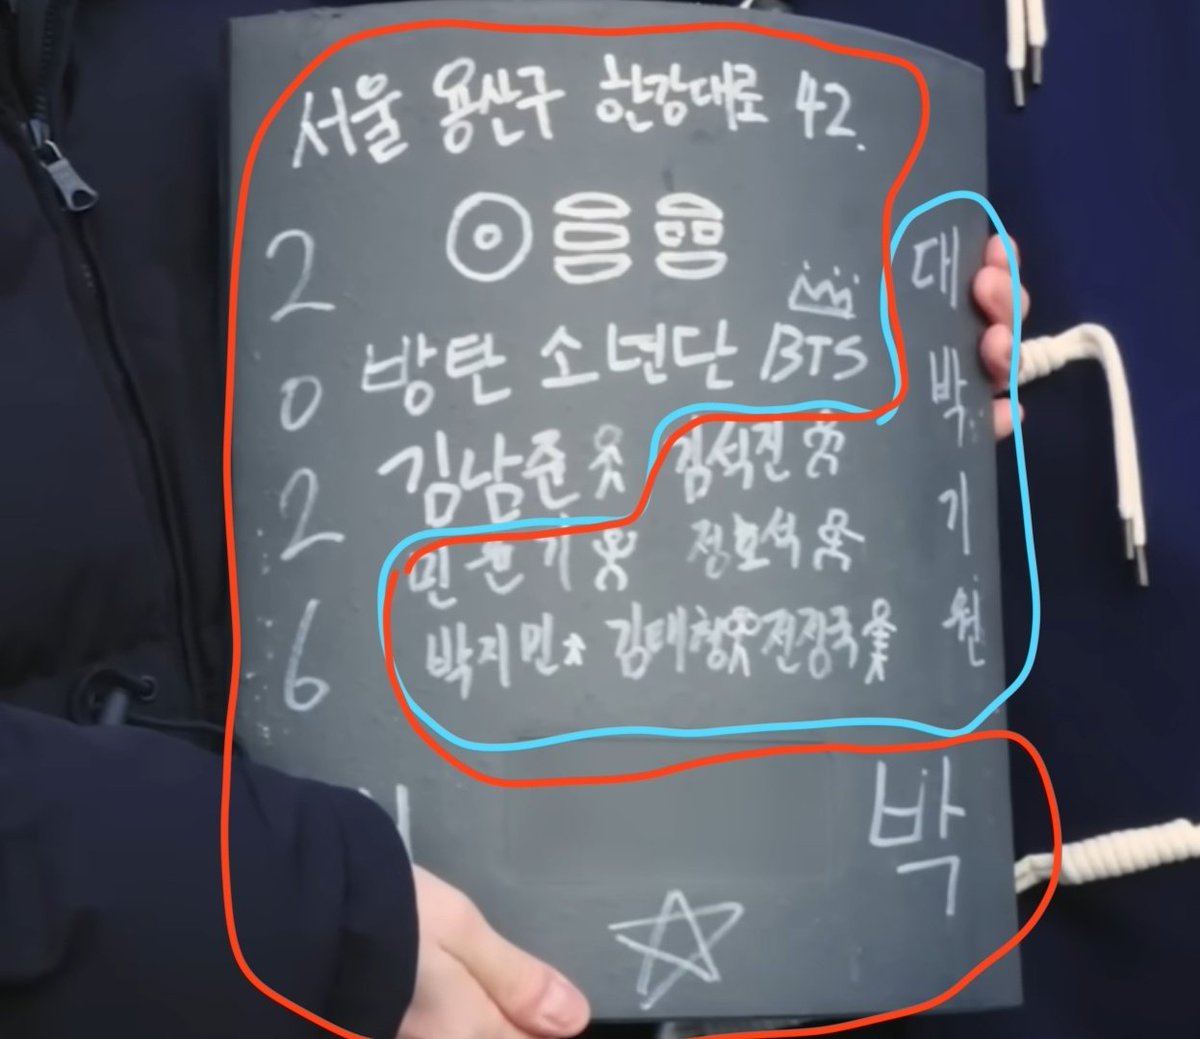 서울 용산구 한강대로 42.
방탄 소년단 BTS
김남준 김석진
민윤기 정호석
박지민 김태형 전정국
2026
대박기원
박